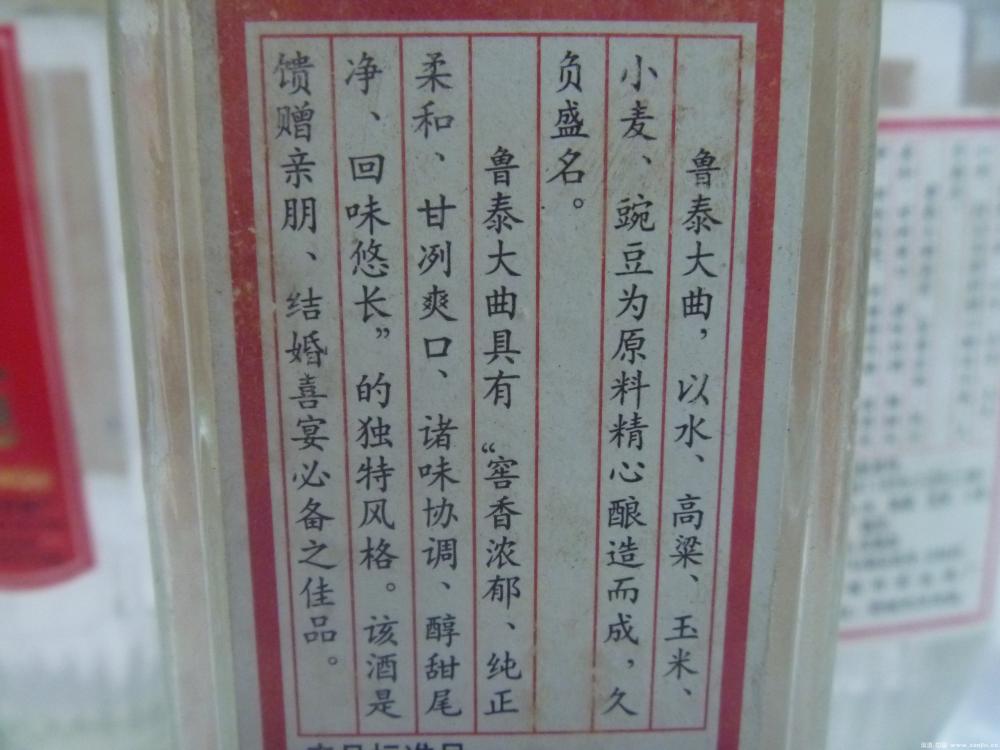 鲁泰大曲，以水、高粱、玉米、
小麦、豌豆为原料精心酿造而成，久
负盛名。
鲁泰大曲具有“窖香浓郁、纯正
柔和、甘冽爽口、诸味协调、醇甜尾
净、回味悠长”的独特风格。该酒是
馈赠亲朋、结婚喜宴必备之佳品。